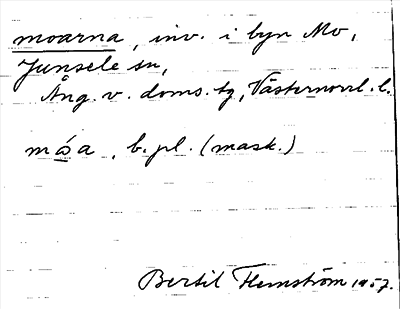 moarna, inv. i byn Mo,
Junsele sn,
Ång. v. doms. tg, Västernorrl. l.
mώ̣a, b. pl. (mask.)
Bertil Flemström 1957.